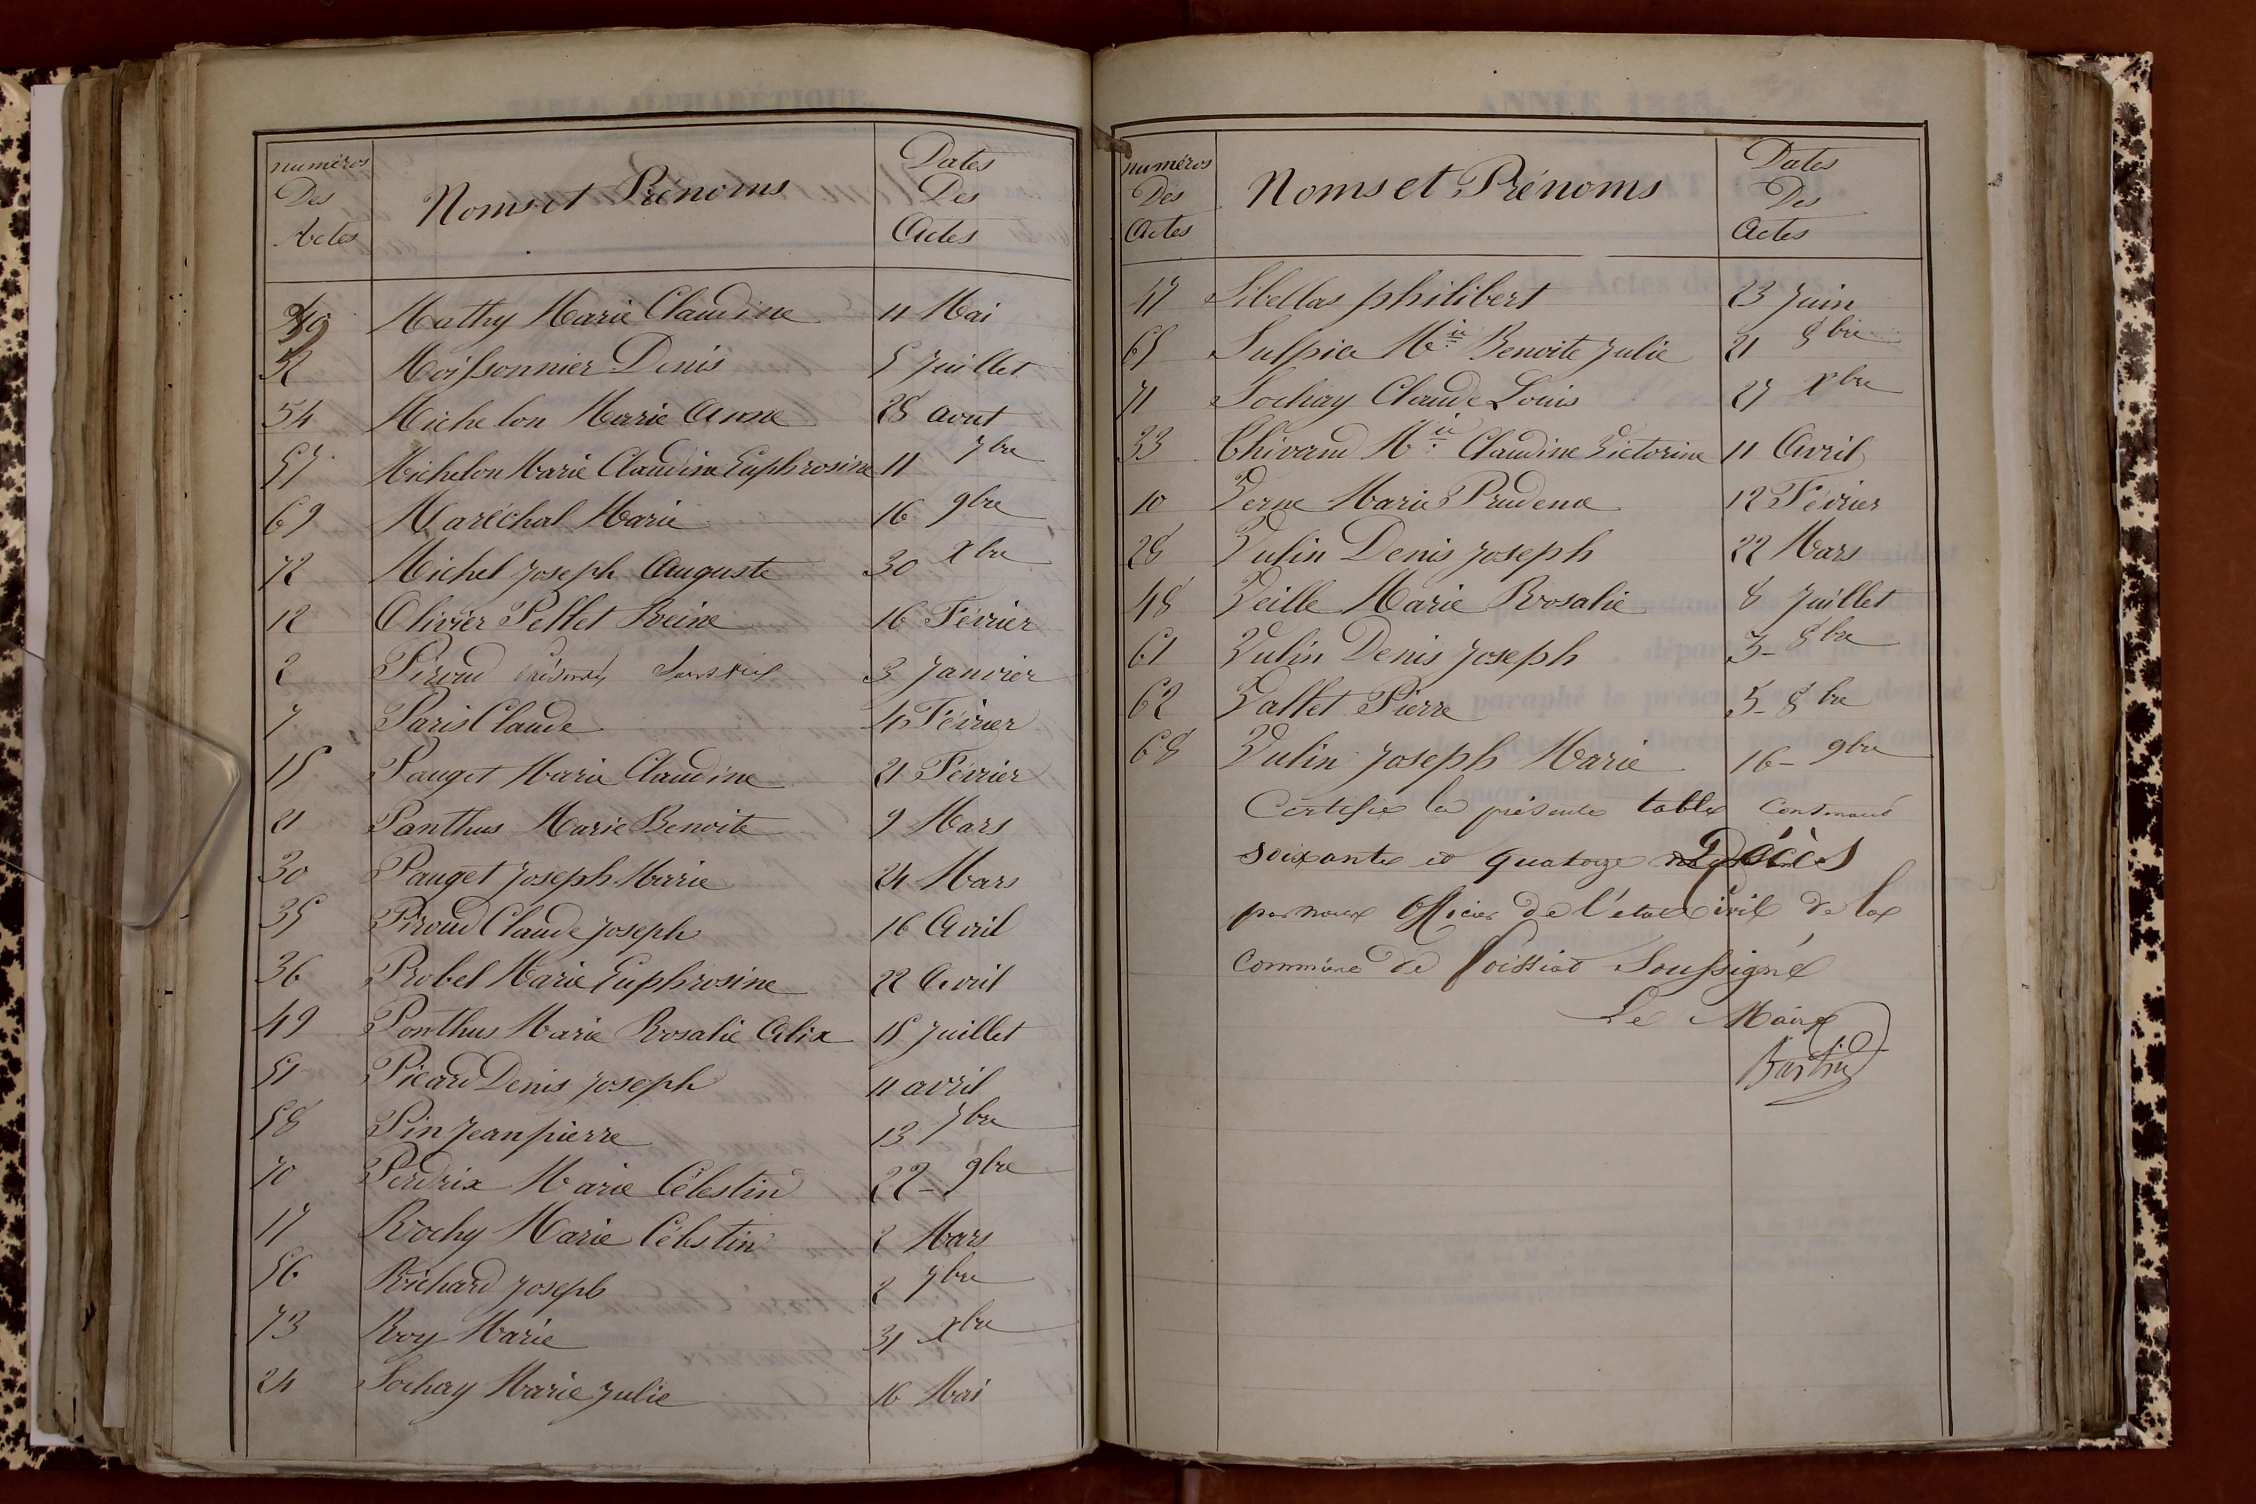 numéros Des Actes
Noms et Prénoms
Dates Des Actes
Mathy Marie Claudine 11 Mai
52 Moissonnier Denis 5 Juillet
54 Michelon Marie Anne 28 aout
57 Michelon Marie Claudine Euphrosine 11 7bre
69 Maréchal Marie 16 9bre
72 Michel Joseph Auguste 30 Xbre
12 Olivier Pellet Reine 16 Février
2 Piroud 3 Janvier
7 Paris Claude 4 Février
15 Pauget Marie Claudine 21 Février
21 Panthus Marie Benoite 9 Mars
30 Pauget Joseph Marie 24 Mars
35 Piroud Claude Joseph 16 Avril
36 Probel Marie Euphrosine 22 Avril
49 Ponthus Marie Rosalie Alix 15 Juillet
51 Picard Denis Joseph 11 avril
58 Pin Jean pierre 13 7bre
70 Perdrix Marie Célestin 22 - 9bre
17 Rochy Marie Célestin 2 Mars
56 Richard Joseph 2 7bre
73 Roy Marie 31 Xbre
24 Sochay Marie Julie 16 Mai
numéros Des Actes
Noms et Prénoms
Dates Des Actes
47 Sibellas philibert 23 Juin
65 Sulpice Mie Benoite Julie 21 8bre
71 Sochay Claude Louis 27 Xbre
33 Thivand Mie Claudine Victorine 11 Avril
10 Verne Marie Prudence 12 Février
28 Vulin Denis Joseph 22 Mars
48 Veille Marie Rosalie 8 Juillet
61 Vulin Denis Joseph 3 - 8bre
62 Vallet Pierre 5 - 8bre
68 Vulin Joseph Marie 16 - 9bre
Certifié la présente table contenant
soixante et quatorze Décès
par nous Officier de l'état Civil de la
Commune de Foissiat Soussigné
Le Maire